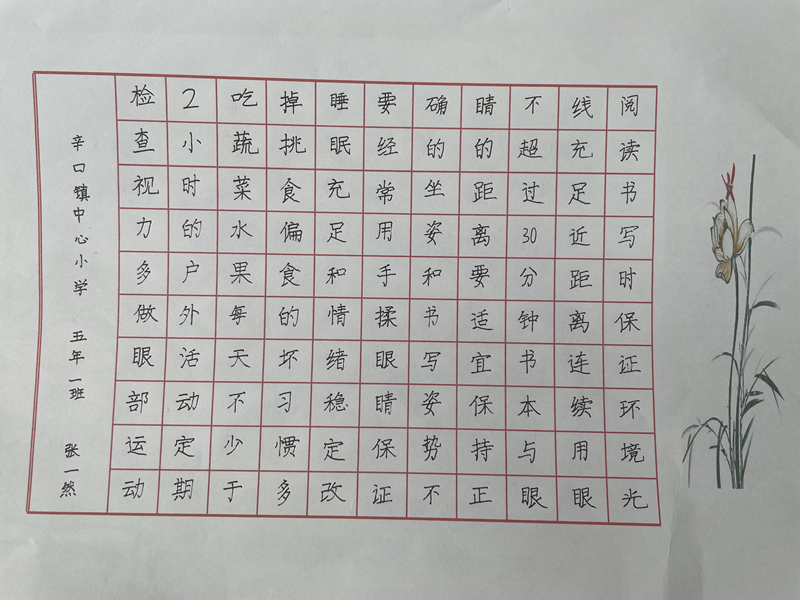 阅读书写时保证环境光
线充足近距离连续用眼
不超过30分钟书本与眼
睛的距离要适宜保持正
确的坐姿和书写姿势不
要经常用手揉眼睛保证
睡眠充足和情绪稳定改
掉挑食偏食的坏习惯多
吃蔬菜水果每天不少于
2小时的户外活动定期
检查视力多做眼部运动
辛口镇中心小学 五年一班 张一然